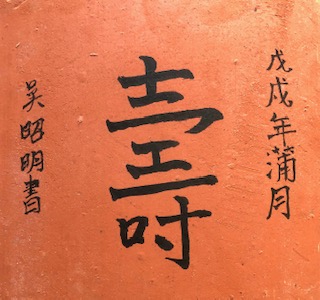 戊戌年蒲月
壽
吴昭明書